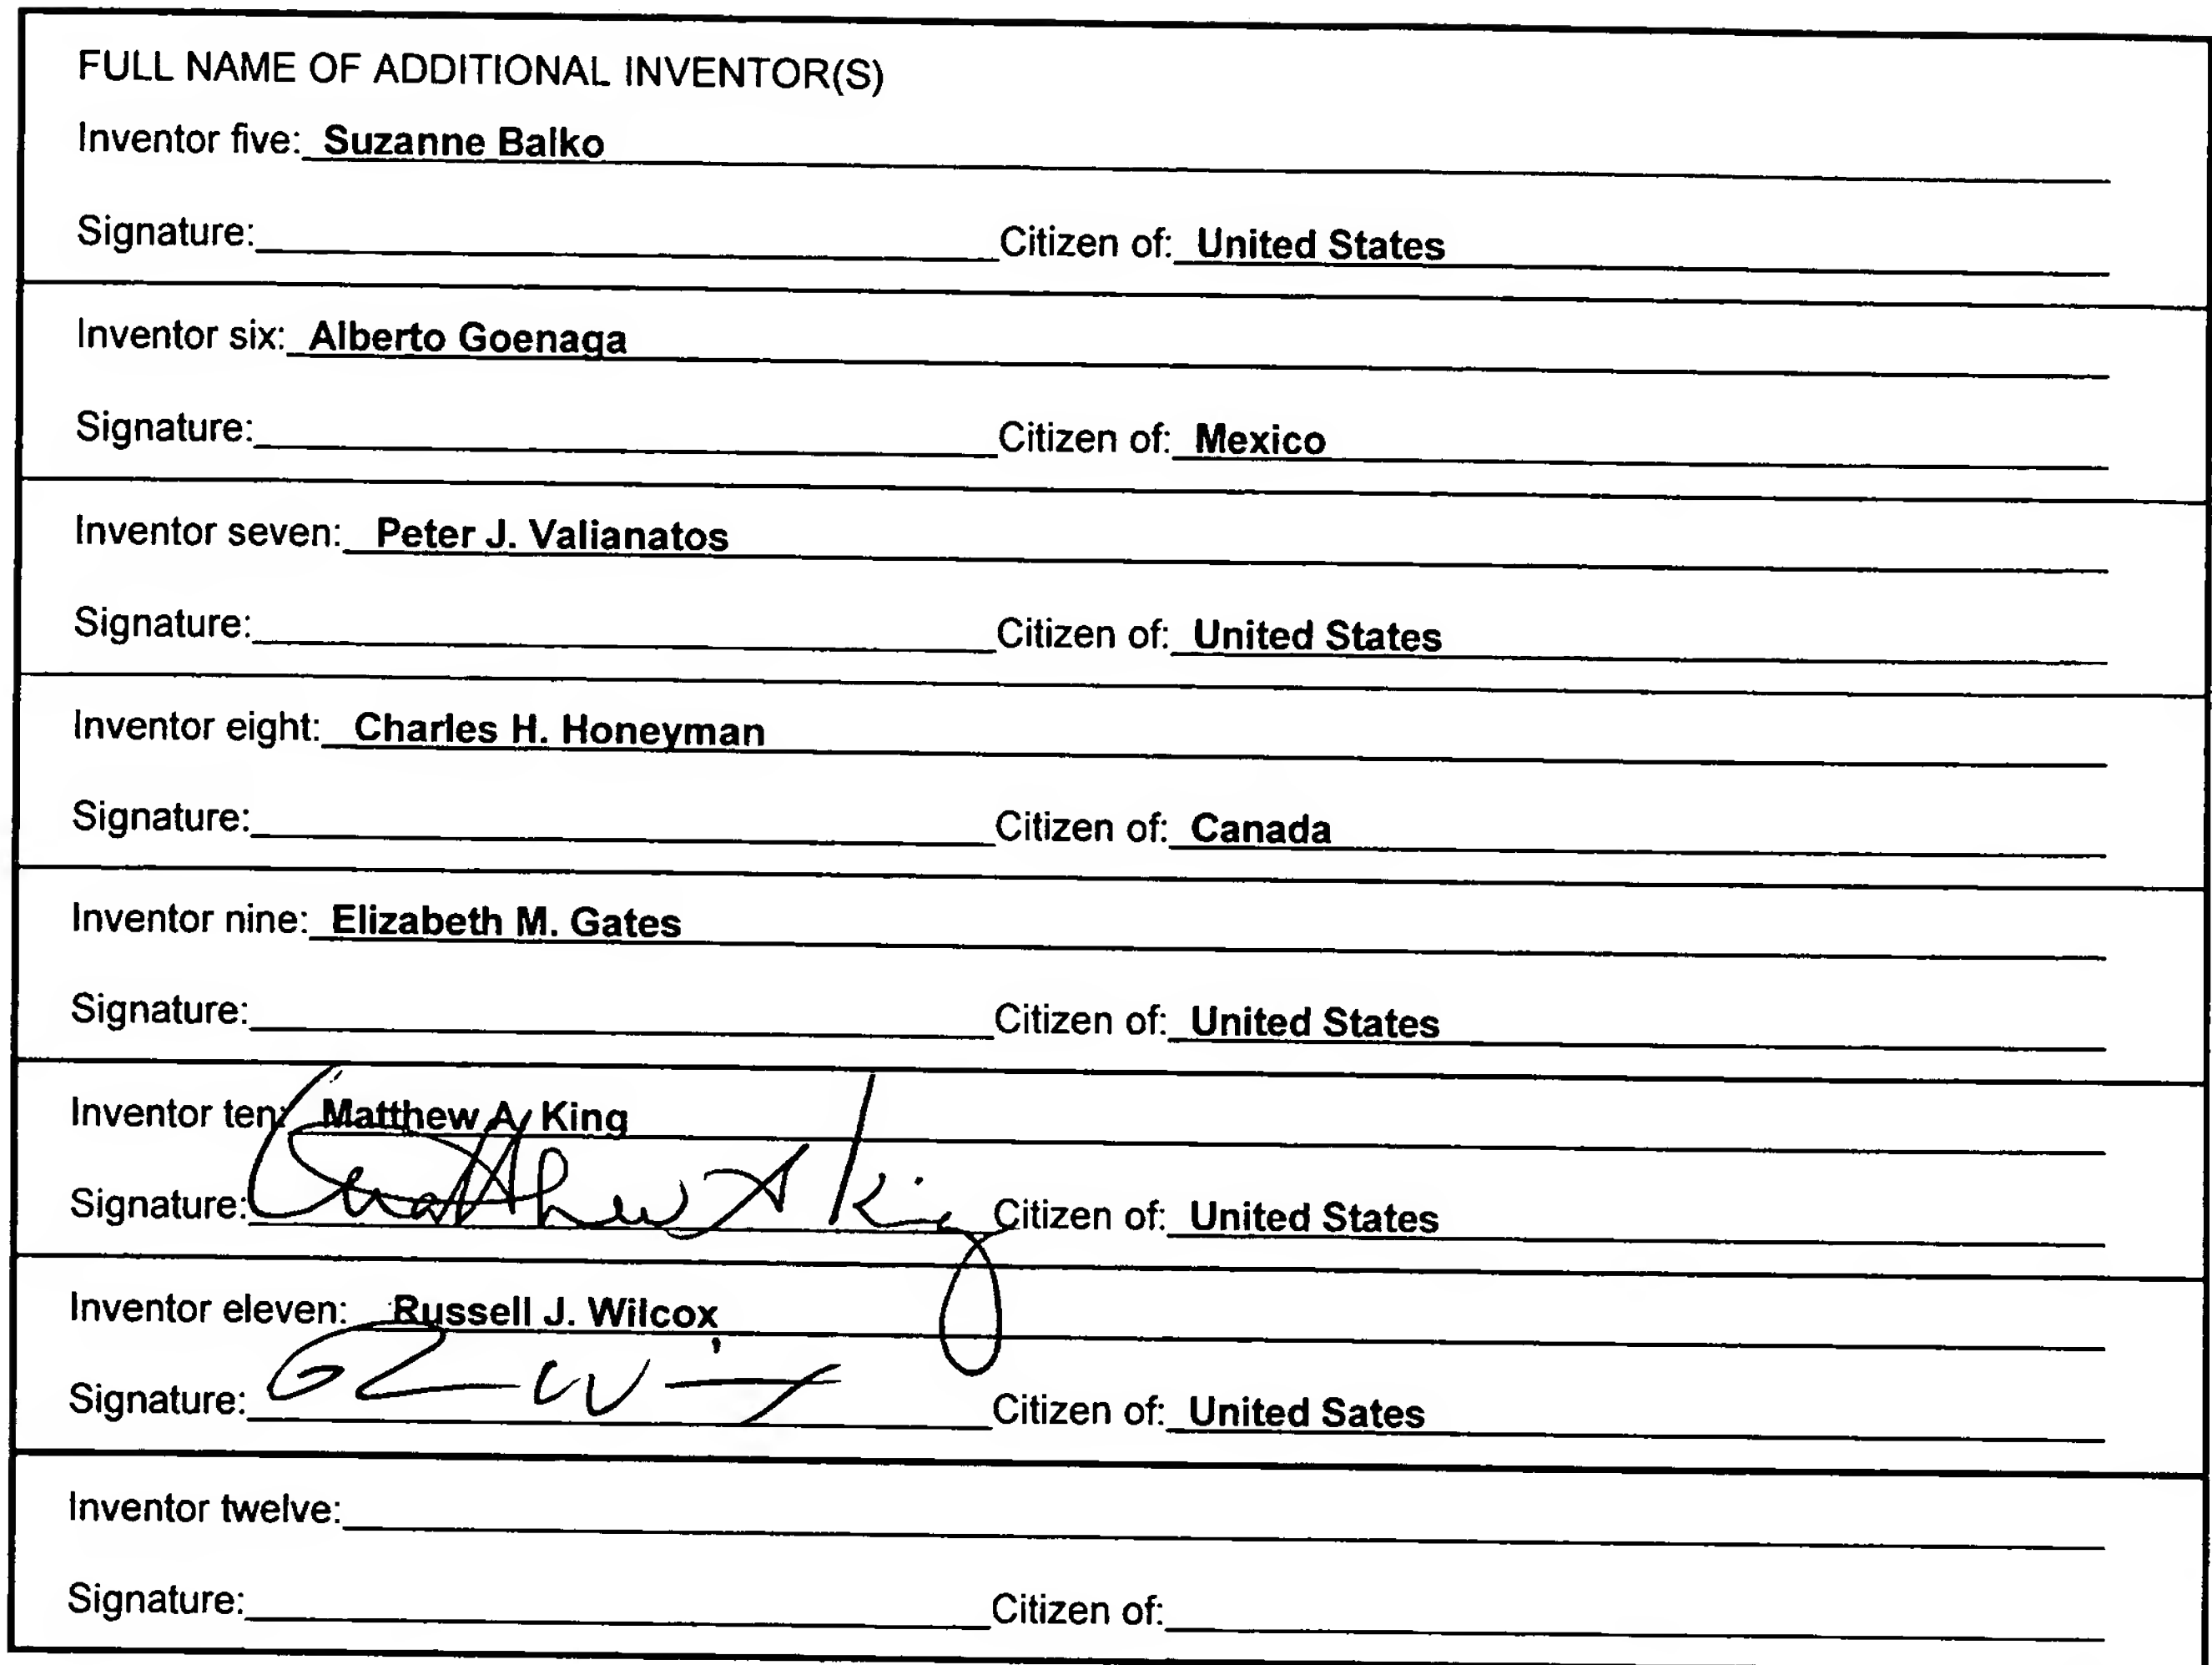 FULL NAME OF ADDITIONAL INVENTOR(S)
Inventor five: Suzanne Balko
Signature: Citizen of: United States
Inventor six: Alberto Goenaga
Signature: Citizen of: Mexico
Inventor seven: Peter J. Valianatos
Signature: Citizen of: United States
Inventor eight: Charles H. Honeyman
Signature: Citizen of: Canada
Inventor nine: Elizabeth M. Gates
Signature: Citizen of: United States
Inventor ten: Matthew A. King
Signature: Matthew A King Citizen of: United States
Inventor eleven: Russell J. Wilcox
Signature: Citizen of: United Sates
Inventor twelve:
Signature: Citizen of: